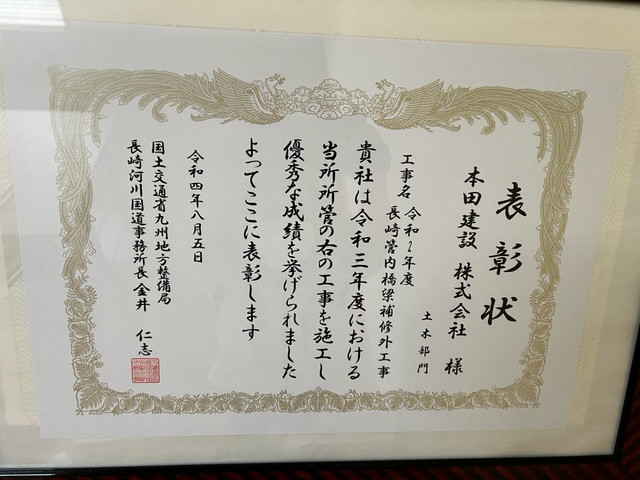 表彰状
本田建設 株式会社 様
土木部門
工事名 令和2年度
長崎管内橋梁補修外工事
貴社は令和三年度における
当所所管の右の工事を施工し
優秀な成績を挙げられました
よってここに表彰します
令和四年八月五日
国土交通省九州地方整備局
長崎河川国道事務所長 金井 仁志